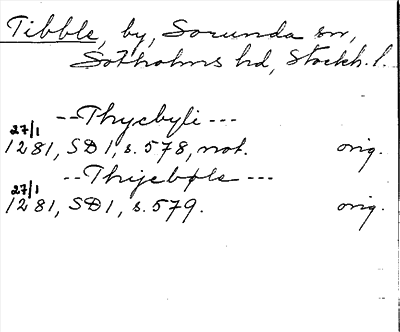 Tibble, by, Sorunda sn,
Sotholms hd, Stockh. l.
--Thycbyli---
27/1
1281, SD 1, s. 578, not. orig.
--Thijcbple---
27/1
1281, SD 1, s. 579. orig.